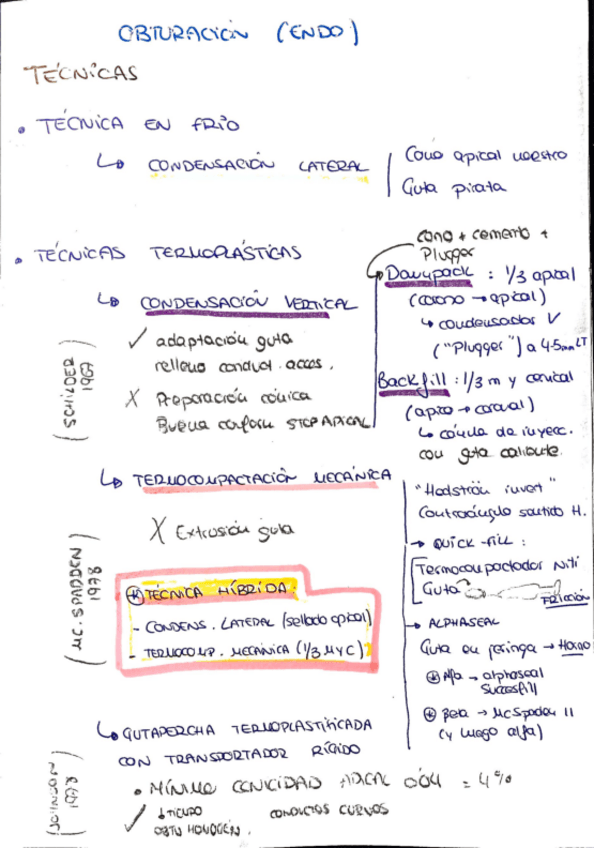 OBTURACIÓN (ENDO)
TÉCNICAS
• TÉCNICA EN FRÍO
↳ CONDENSACIÓN LATERAL
Cono apical maestro
Guta pirata
• TÉCNICAS TERMOPLÁSTICAS
↳ CONDENSACIÓN VERTICAL
(SCHILDER 1967)
✓ adaptación guta
relleno conduct. acces.
X Preparación cónica
Buena conform STOP APICAL
cono + cemento +
Plugger
Downpack : 1/3 apical
(corono → apical)
↳ condensador V
("Plugger") a 4-5mm LT
Backfill : 1/3 m y cervical
(apico → coronal)
↳ cánula de inyecc.
con guta caliente.
↳ TERMOCOMPACTACIÓN MECÁNICA
(MC. SPADDEN 1978)
X Extrusión guta
⊛ TÉCNICA HÍBRIDA:
- CONDENS. LATERAL (sellado apical)
- TERMOCOMP. MECÁNICA (1/3 M y C)
"Hedström invert"
Contraángulo sentido H.
→ QUICK-FILL:
Termocompactador NiTi
Guta
FRICCIÓN
→ ALPHASEAL
Guta en jeringa → Horno
⊛ Alfa → alphaseal
Succesfill
⊛ Beta → McSpaden II
(y luego alfa)
↳ GUTAPERCHA TERMOPLASTIFICADA
CON TRANSPORTADOR RÍGIDO
1978
• MÍNIMO CONICIDAD APICAL 004 = 4%
✓ ↓ TIEMPO CONDUCTOS CURVOS
OBTU HOMOGÉN.